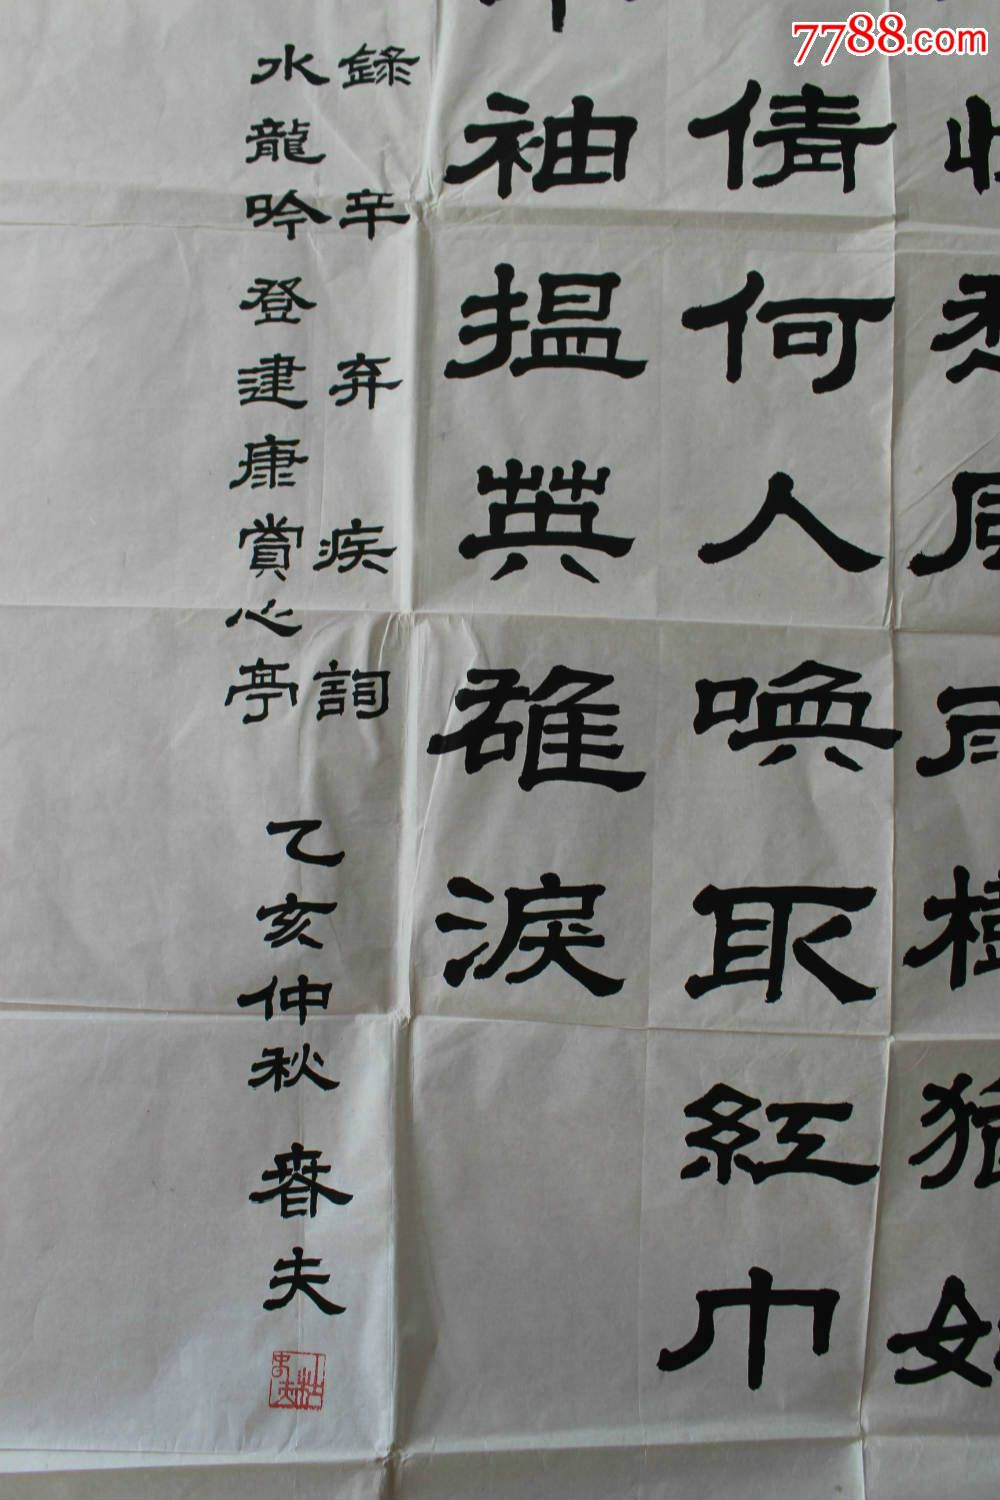 7788.com
愁風雨樹猶如
倩何人喚取紅巾
袖搵英雄淚
錄辛弃疾詞
水龍吟登建康賞心亭 乙亥仲秋 春夫